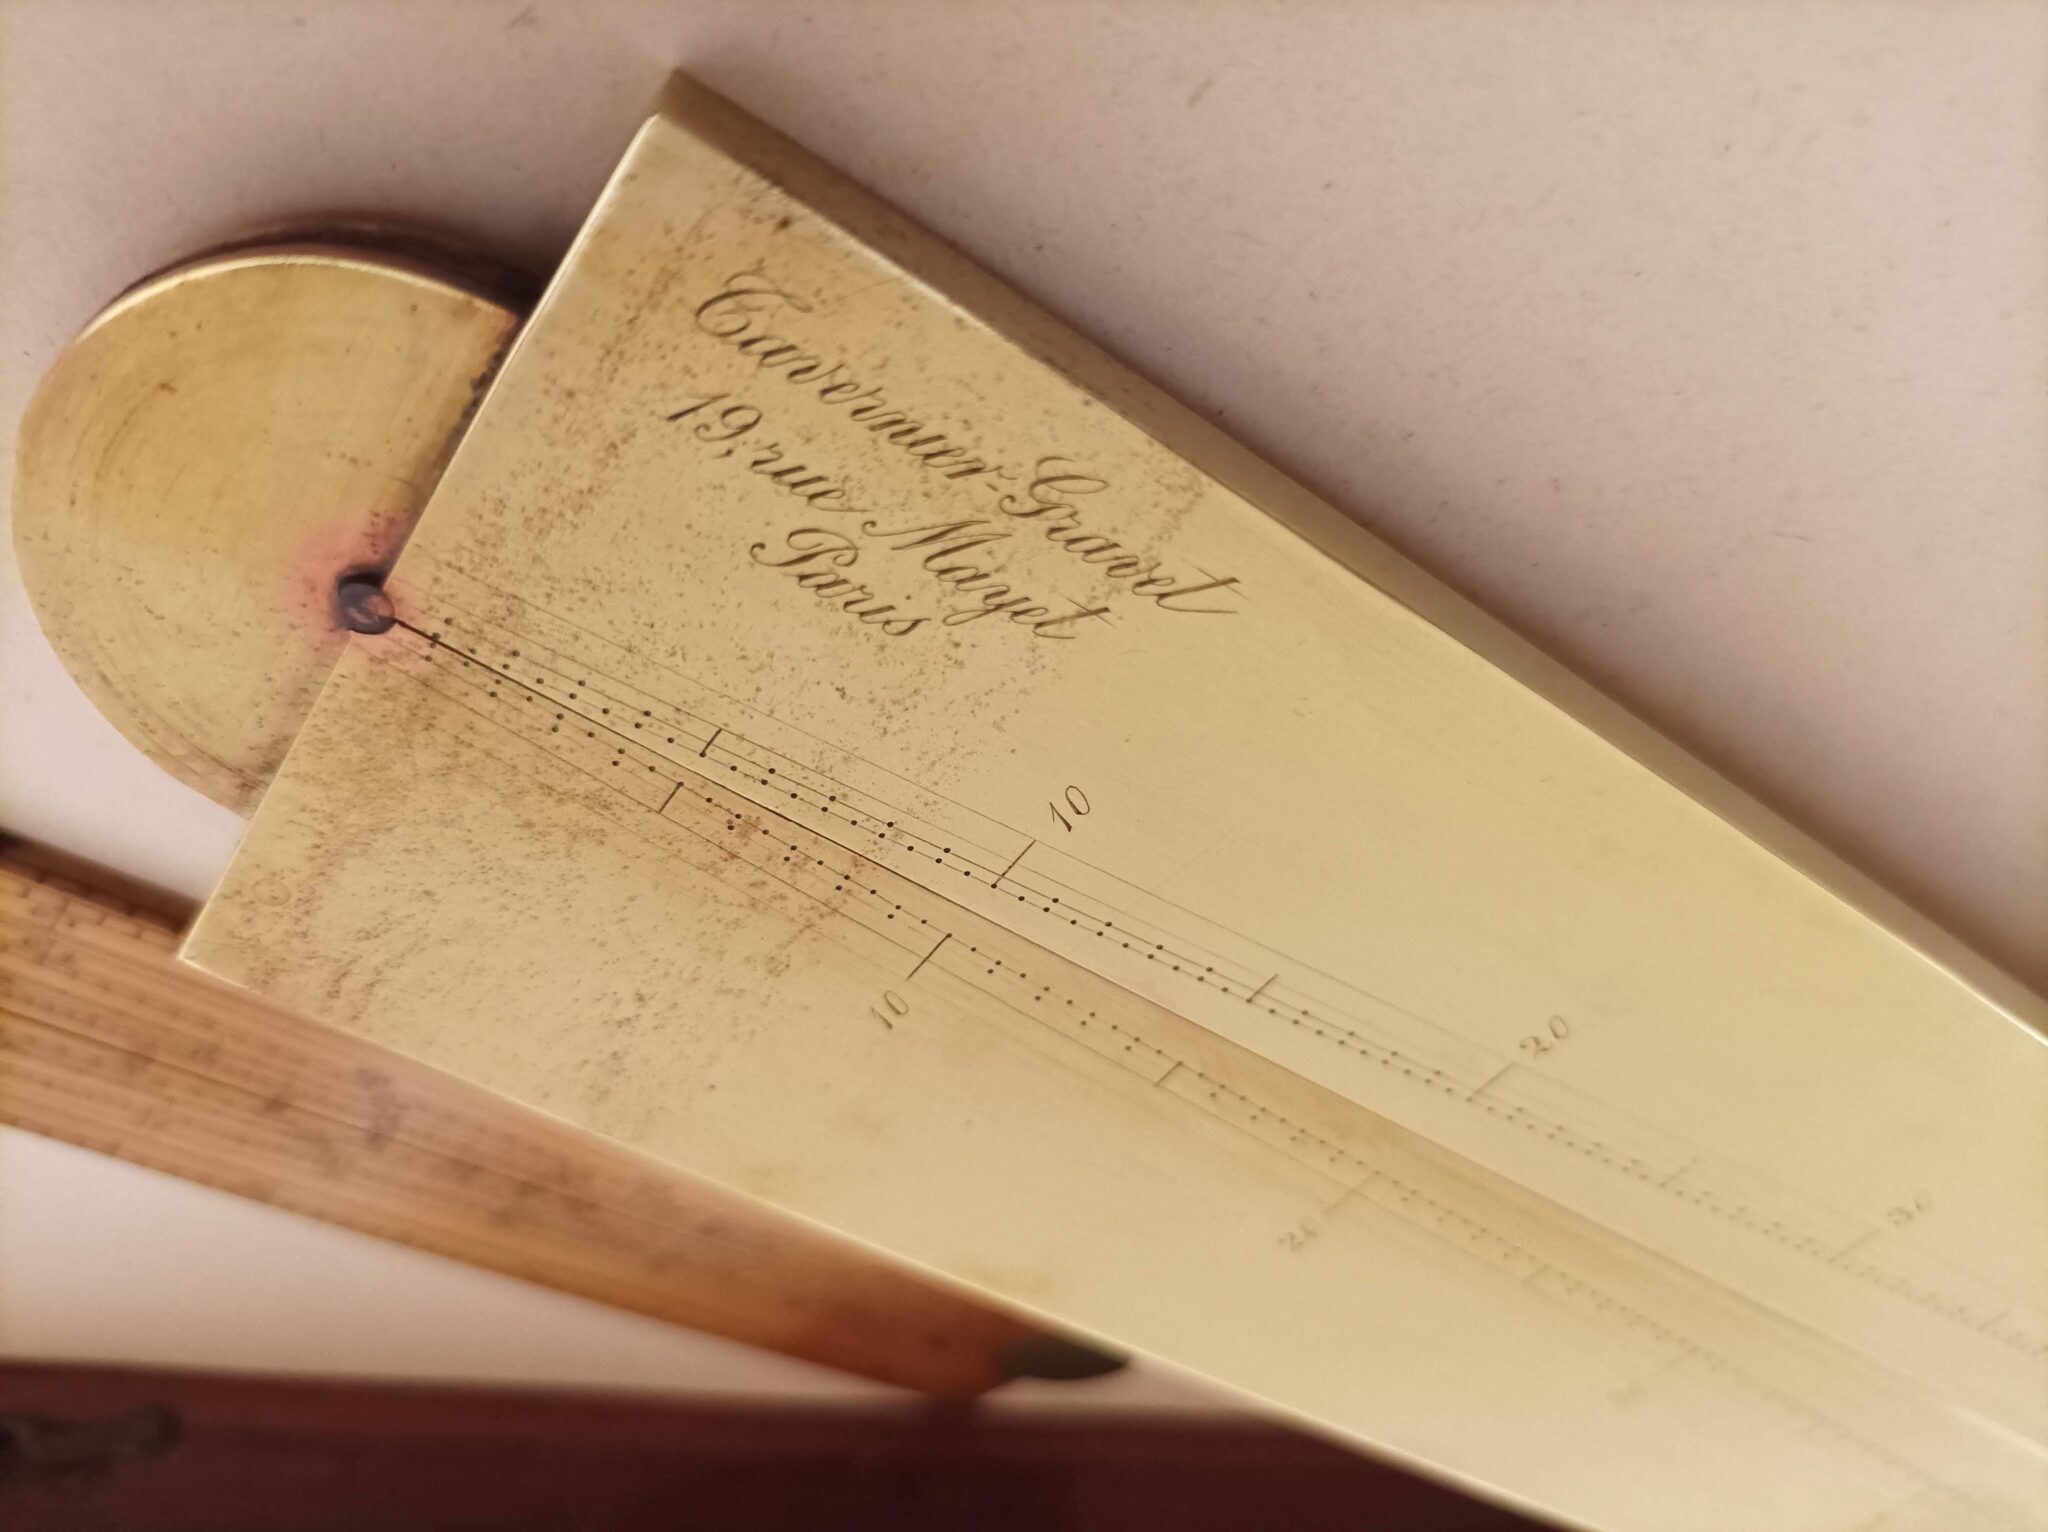 Tavernier-Gravet
19, rue Mayet
Paris
10
20
30
10
20